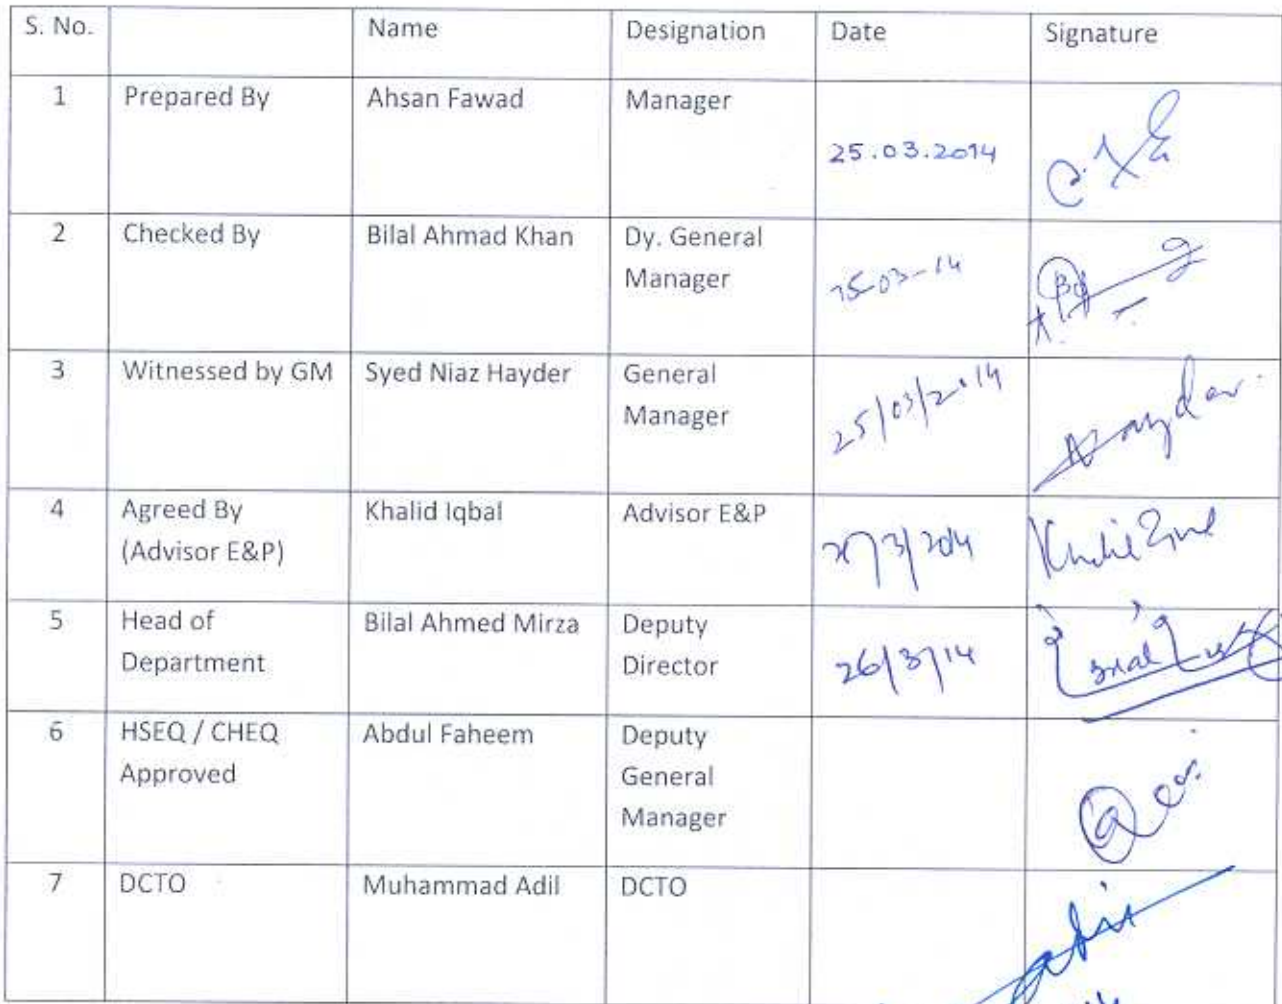 S. No. Name Designation Date Signature
1 Prepared By Ahsan Fawad Manager
25.03.2014
2 Checked By Bilal Ahmad Khan Dy. General
Manager
25-03-14
3 Witnessed by GM Syed Niaz Hayder General
Manager
25/03/2014
4 Agreed By Khalid Iqbal Advisor E&P
(Advisor E&P)
5 Head of Bilal Ahmed Mirza Deputy
Department Director
26/3/14
6 HSEQ / CHEQ Abdul Faheem Deputy
Approved General
Manager
7 DCTO Muhammad Adil DCTO